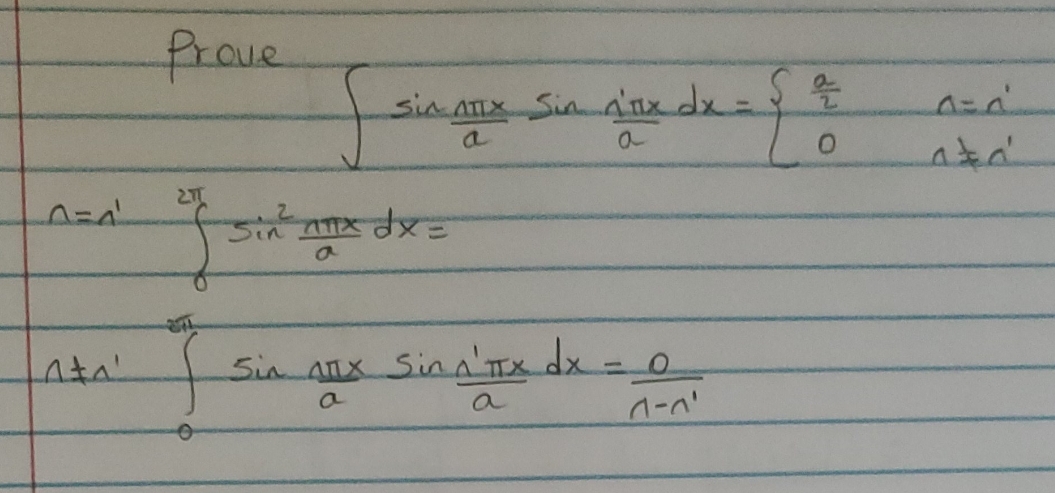 Prove
∫ sin nπx/a sin n'πx/a dx = { a/2 n=n'
0 n≠n'
n=n' ∫₀^2π sin² nπx/a dx =
n≠n' ∫₀^2π sin nπx/a sin n'πx/a dx = 0/(n-n')